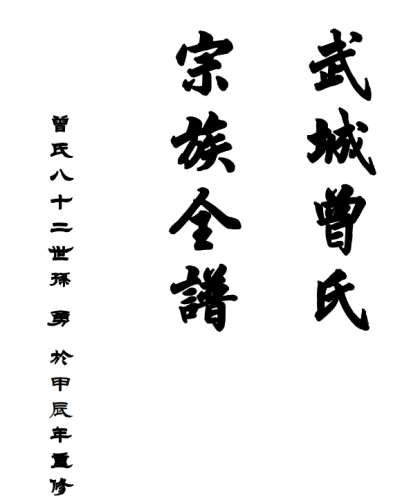 武城曾氏
宗族全譜
曾氏八十二世孫 勇 於甲辰年重修